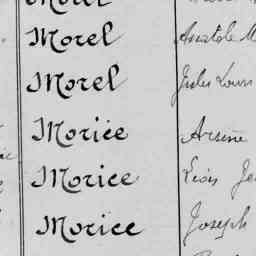 Morel Anatole M
Morel Jules Louis
Morice Arsène
Morice
Morice Joseph